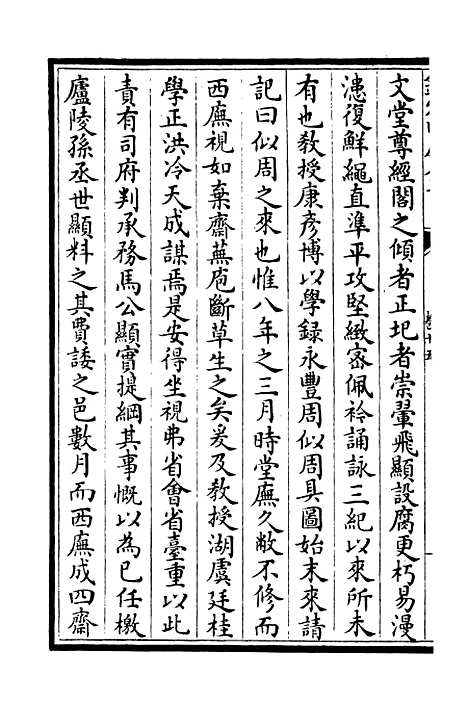 文堂尊經閣之傾者正圯者崇翬飛顯設腐更朽易漫
漶復鮮繩直準平攻堅緻宻佩衿誦詠三紀以來所未
有也教授康彦博以學録永豐周似周具圖始末來請
記曰似周之來也惟八年之三月時堂廡久敝不修而
西廡視如棄齋蕪庖斷草生之矣爰及教授湖虞廷桂
學正洪冷天成謀焉是安得坐視弗省㑹省臺重以此
責有司府判承務馬公顯實提綱其事慨以為已任檄
廬陵孫丞世顯料之其費諉之邑數月而西廡成四齋